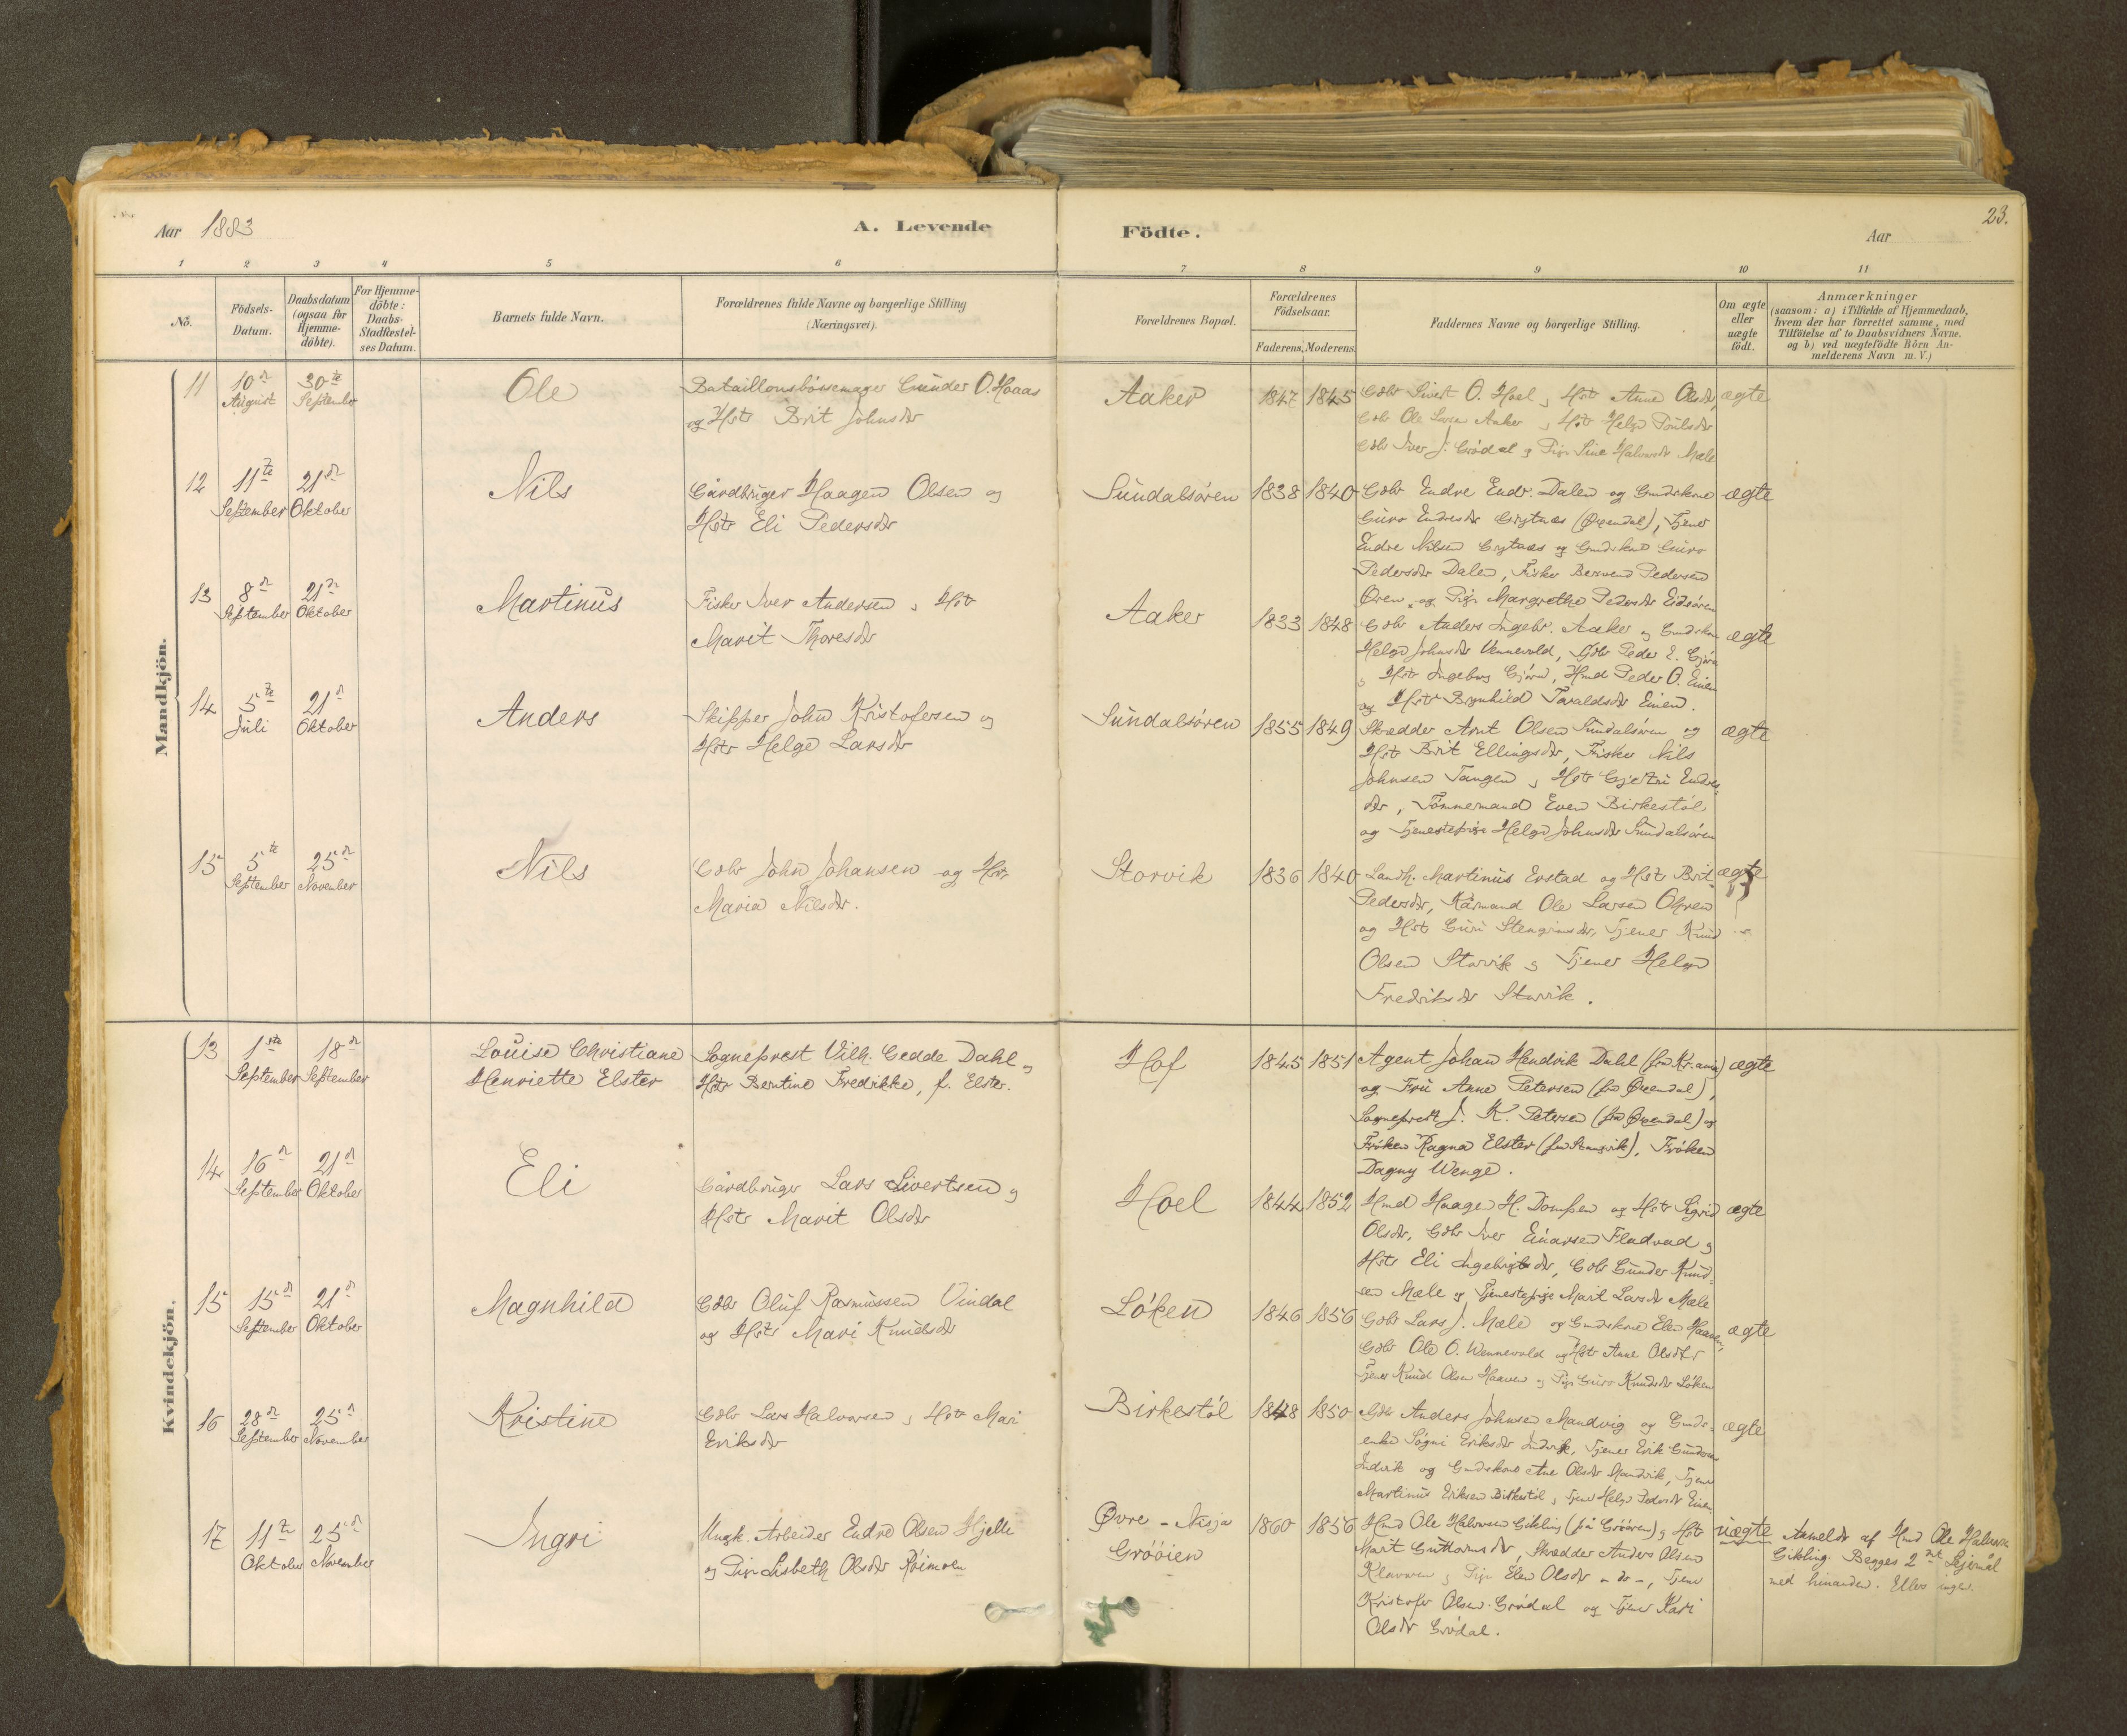 Aar 1883
A. Levende
Födte.
Aar
23.
1 2 3 4 5 6 7 8 9 10 11
No.
Födsels-
Datum.
Daabsdatum
(ogsaa for
Hjemme-
döbte).
For Hjemme-
döbte:
Daabs-
Stadfæstel-
ses Datum.
Barnets fulde Navn.
Forældrenes fulde Navne og borgerlige Stilling
(Næringsvei).
Forældrenes Bopæl.
Forældrenes
Födselsaar.
Faderens. Moderens.
Faddernes Navne og borgerlige Stilling.
Om ægte
eller
uægte
födt.
Anmærkninger
(saasom: a) i Tilfælde af Hjemmedaab,
hvem der har forrettet samme, med
Tilföielse af to Daabsvidners Navne.
og b) ved uægtefödte Börn An-
melderens Navn m. V.)
Mandkjön.
11
10de
August
30te
September
Ole
Bataillonsbössemager Gunder O. Hoaas
og Hstr Brit Johnsdr
Aaker
1847 1845
Gdbr Sivert O. Hoel, Hstr Anne Olsdr,
Gdbr Ole Larsen Aaker, Hstr Helge Paulsdr
Gdbr Iver J. Grödal og Pige Sine Halvorsdr Mæle
ægte
12
11te
September
21de
Oktober
Nils
Gårdbruger Haagen Olsen og
Hstr Eli Pedersdr
Sundalsören
1838 1840
Gdbr Endre Endr. Dalen og Gmdskone
Guro Endresdr (Øxendal), Tjener
Endre Nilsen og Gmdskone Guro
Pedersdr Dalen, Fisker Pedersen
Ören og Pige Margrethe Pedersdr Eidsören
ægte
13
8de
September
21de
Oktober
Martinus
Fisker Iver Andersen, Hstr
Marit Thoresdr
Aaker
1833 1848
Gdbr Anders Ingebr. Aaker og Gmdskone
Helge Johnsdr Vennevold, Gdbr Peder E. Gjöra
, Hstr Ingeborg Gjöra, Hmd Peder O. Einen
og Hstr Brynhild Taraldsdr Einen.
ægte
14
5te
Juli
21de
Oktober
Anders
Skipper John Kristofersen og
Hstr Helge Larsdr
Sundalsören
1855 1849
Skrædder Arnt Olsen Sundalsören og
Hstr Brit Ellingsdr, Fisker Nils
Johnsen Tangen, Hstr Gjertru Endres-
dr, Tömmermand Even Birkestöl
og Tjenestepige Helge Johnsdr Sundalsören
ægte
15
5te
September
25de
November
Nils
Gdbr John Johansen og Hstr
Maria Nilsdr.
Storvik
1836 1840
Landh. Martinus Erstad og Hstr Brit
Pedersdr, Kårmand Ole Larsen Ohren
og Hst Guri Stengrimsdr, Tjener Knud
Olsen Storvik og Tjener Helge
Fredriksdr Storvik.
ægte
Kvindekjön.
13
1ste
September
18de
September
Louise Christiane
Henriette Elster
Sogneprest Vilh. Gedde Dahl og
Hstr Bertine Fredrikke, f. Elster.
Hof
1845 1851
Agent Johan Hendrik Dahl (fra Kr.ania)
og Fru Anne Petersen (fra Øxendal),
Sogneprest J. K. Petersen (fra Øxendal) og
Fröken Ragna Elster, Fröken
Dagny Wenge.
ægte
14
16de
September
21de
Oktober
Eli
Gårdbruger Lars Sivertsen og
Hstr Marit Olsdr
Hoel
1844 1852
Hmd Haagen H. Dompen og Hstr Sigrid
Olsdr, Gdbr Iver Einarsen Fladvad og
Hstr Eli Ingebrigtsdr, Gdbr Gunder Knud-
sen Mæle og Tjenestepige Marit Larsdr Mæle
ægte
15
15de
September
21de
Oktober
Magnhild
Gdbr Oluf Rasmussen Vindal
og Hstr Mari Knudsdr
Löken
1846 1856
Gdbr Lars J. Mæle og Gmdskone Elen Haaven,
Gdbr Ole O. Wennevold og Hstr Anne Olsdtr
Tjener Knud Olsen Haaven og Pige Guro Knudsdr Löken
ægte
16
28de
September
25de
November
Kristine
Gdbr Lars Halvorsen, Hstr Mari
Eriksdr
Birkestöl
1848 1850
Gdbr Anders Johnsen Mandvig og Gmds-
enke Sögni Eriksdr Indvik, Tjener Erik Gundersen
Indvik og Gmdskone Ane Olsdr Mandvik, Tjener
Martinus Eriksen Birkestöl, Tjener Helge Pedersdr Einen
ægte
17
11te
Oktober
25de
November
Ingri
Ungk. Arbeider Endre Olsen Hjelle
og Pige Lisbeth Olsdr Röimoen
Øvre - Nisja
Gröóien
1860 1856
Hmd Ole Halvorsen Gikling (på Gröóren) og Hstr
Marit Guttormsdr, Skrædder Anders Olsen
Klavven og Pige Elen Olsdr - do -, Tjener
Kristofer Olsen Grödal og Tjener Kari
Olsdr Grödal.
uægte
Anmeldt af Hmd Ole Halvorsen
Gikling. Begges 2det Leiermål
med hinanden. Ellers ingen.